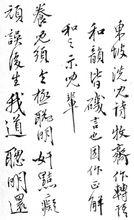 東坡洗兒詩牧齋作轉語
和韻皆言也因作正解
和之示兒輩
養兒須生極聰明奸黠癡
頑誤後生我道聰明還